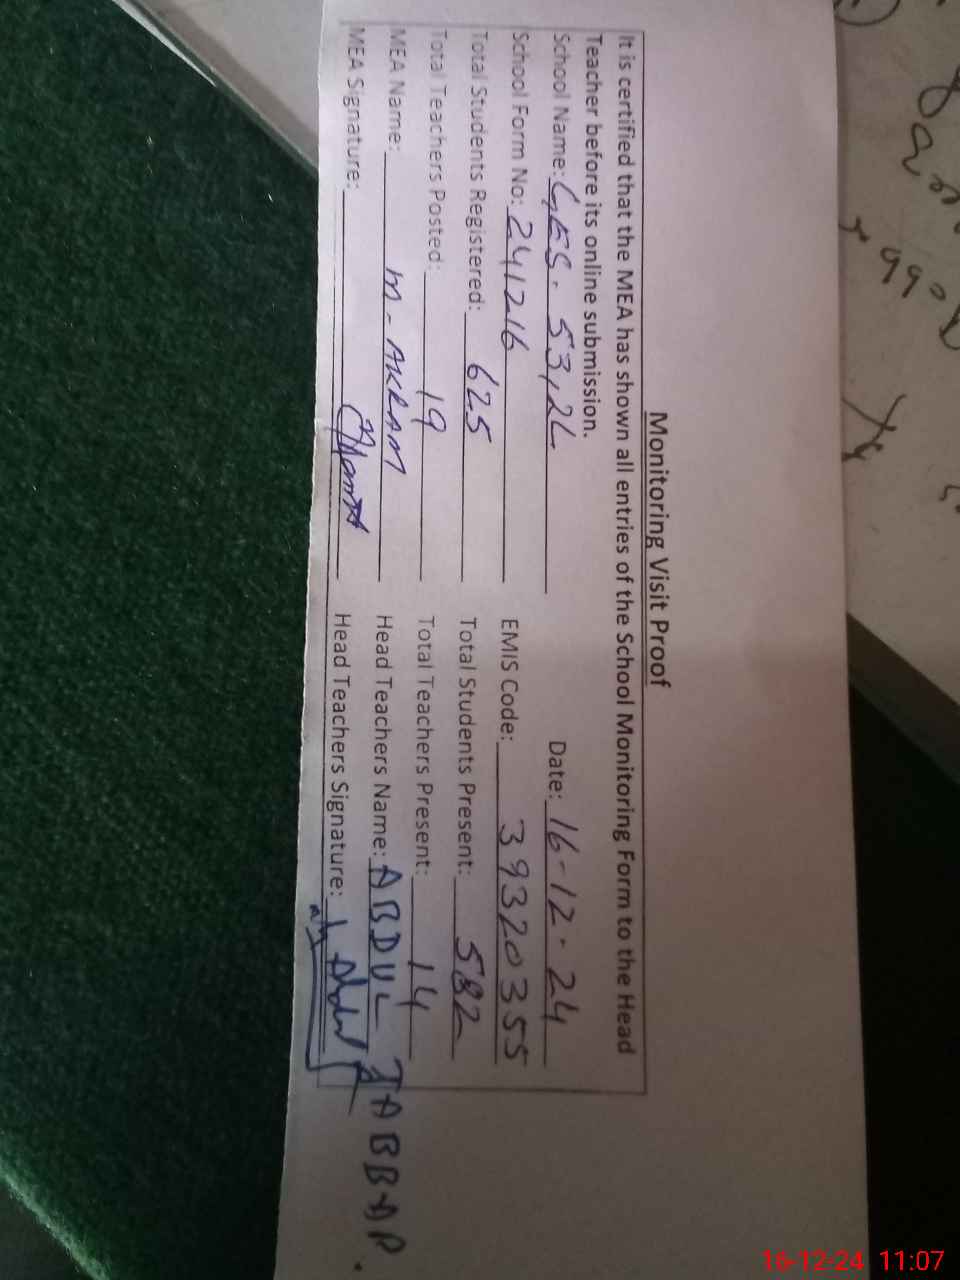 Monitoring Visit Proof
It is certified that the MEA has shown all entries of the School Monitoring Form to the Head
Teacher before its online submission.
School Name: GES. 53/2L Date: 16-12-24
School Form No: 241216 EMIS Code: 39320355
Total Students Registered: 625 Total Students Present: 582
Total Teachers Posted: 19 Total Teachers Present: 14
MEA Name: M-AKRAM Head Teachers Name: ABDUL JABBAR.
MEA Signature: Head Teachers Signature:
16-12-24 11:07